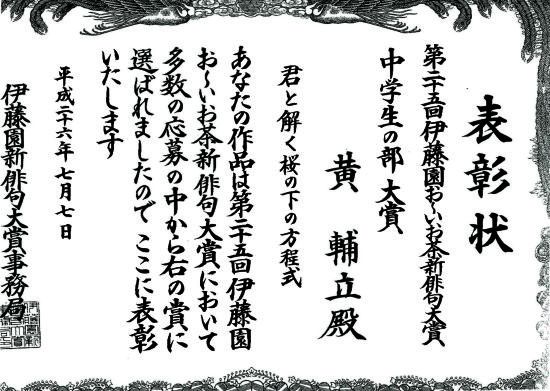 表彰状
第二十五回伊藤園おーいお茶新俳句大賞
中学生の部 大賞
黄 輔立殿
君と解く桜の下の方程式
あなたの作品は第二十五回伊藤園
お〜いお茶新俳句大賞において
多数の応募の中から右の賞に
選ばれましたので ここに表彰
いたします
平成二十六年七月七日
伊藤園新俳句大賞事務局